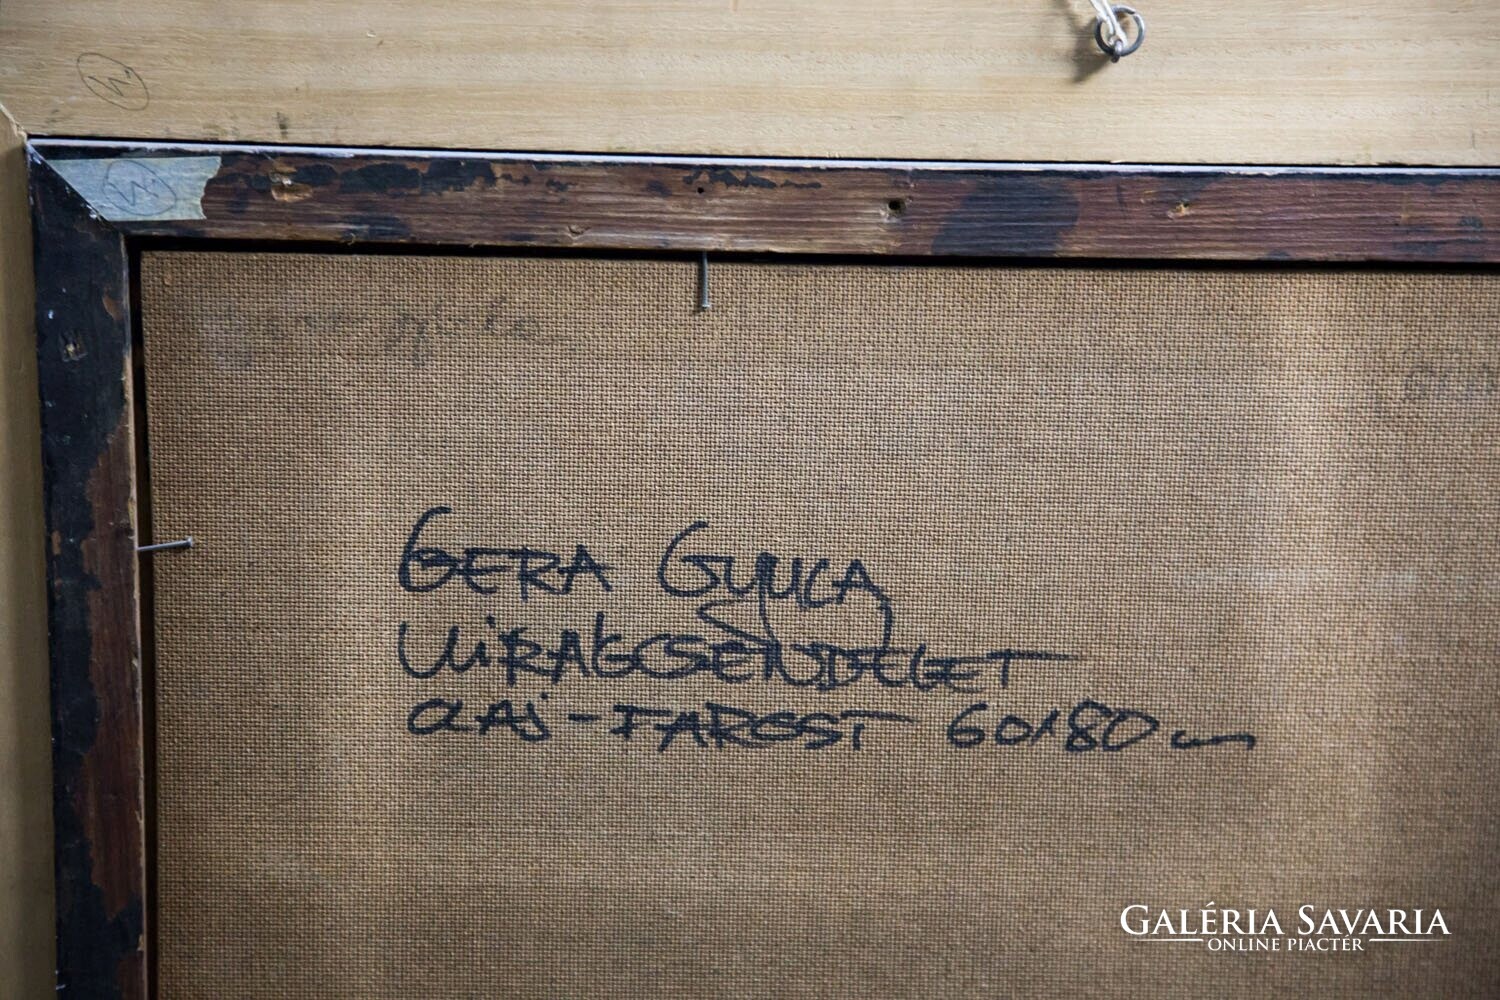 GERA GYULA
VIRÁGCSENDÉLET
OLAJ - FAROST 60x80 cm
GALÉRIA SAVARIA
ONLINE PIACTÉR